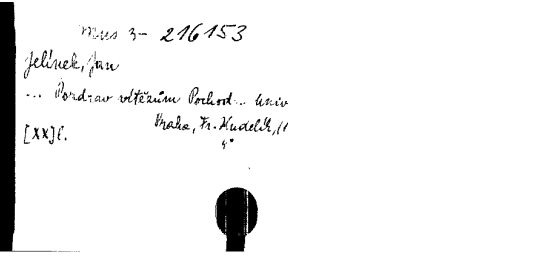 Mus 3- 216153
Jelínek, Jan
... Pozdrav vítězům Pochod...
Praha, Fr. Hudelík,
[XX]l.
4°